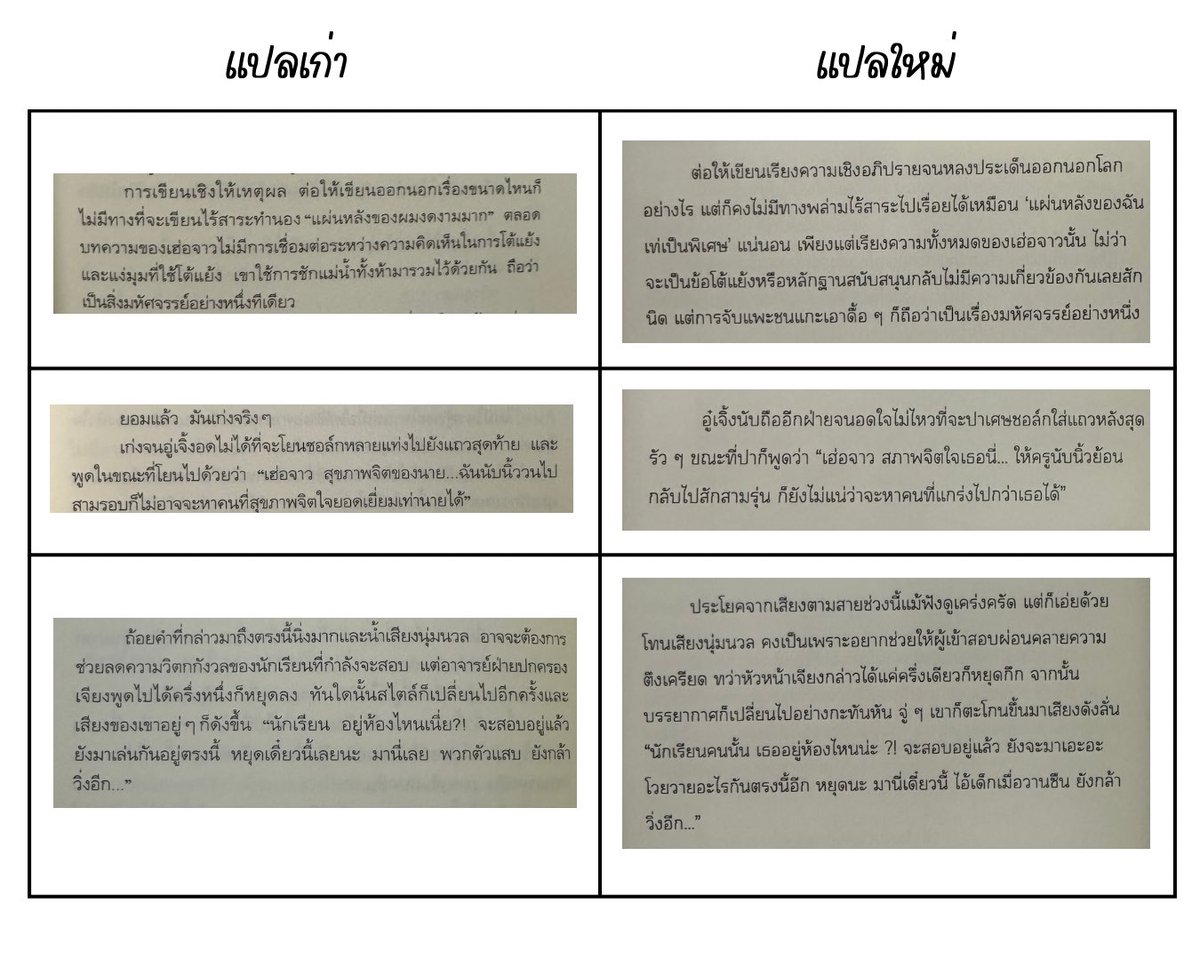 แปลเก่า
แปลใหม่
การเขียนเชิงให้เหตุผล ต่อให้เขียนออกนอกเรื่องขนาดไหนก็
ไม่มีทางที่จะเขียนไร้สาระทำนอง “แผ่นหลังของผมงดงามมาก” ตลอด
บทความของเฮ่อจาวไม่มีการเชื่อมต่อระหว่างความคิดเห็นในการโต้แย้ง
และแง่มุมที่ใช้โต้แย้ง เขาใช้การชักแม่น้ำทั้งห้ามารวมไว้ด้วยกัน ถือว่า
เป็นสิ่งมหัศจรรย์อย่างหนึ่งทีเดียว
ต่อให้เขียนเรียงความเชิงอภิปรายจนหลงประเด็นออกนอกโลก
อย่างไร แต่ก็คงไม่มีทางพล่ามไร้สาระไปเรื่อยได้เหมือน ‘แผ่นหลังของฉัน
เท่เป็นพิเศษ’ แน่นอน เพียงแต่เรียงความทั้งหมดของเฮ่อจาวนั้น ไม่ว่า
จะเป็นข้อโต้แย้งหรือหลักฐานสนับสนุนกลับไม่มีความเกี่ยวข้องกันเลยสัก
นิด แต่การจับแพะชนแกะเอาดื้อ ๆ ก็ถือว่าเป็นเรื่องมหัศจรรย์อย่างหนึ่ง
ยอมแล้ว มันเก่งจริงๆ
เก่งจนอู่เจิ้งอดไม่ได้ที่จะโยนชอล์กหลายแท่งไปยังแถวสุดท้าย และ
พูดในขณะที่โยนไปด้วยว่า “เฮ่อจาว สุขภาพจิตของนาย...ฉันนับนิ้ววนไป
สามรอบก็ไม่อาจจะหาคนที่สุขภาพจิตใจยอดเยี่ยมเท่านายได้”
อู๋เจิ้งนับถืออีกฝ่ายจนอดใจไม่ไหวที่จะปาเศษชอล์กใส่แถวหลังสุด
รัว ๆ ขณะที่ปากก็พูดว่า “เฮ่อจาว สภาพจิตใจเธอนี่... ให้ครูนับนิ้วย้อน
กลับไปสักสามรุ่น ก็ยังไม่แน่ว่าจะหาคนที่แกร่งไปกว่าเธอได้”
ถ้อยคำที่กล่าวมาถึงตรงนี้นิ่งมากและน้ำเสียงนุ่มนวล อาจจะต้องการ
ช่วยลดความวิตกกังวลของนักเรียนที่กำลังจะสอบ แต่อาจารย์ฝ่ายปกครอง
เจียงพูดไปได้ครึ่งหนึ่งก็หยุดลง ทันใดนั้นสไตล์ก็เปลี่ยนไปอีกครั้งและ
เสียงของเขาอยู่ๆ ก็ดังขึ้น “นักเรียน อยู่ห้องไหนเนี่ย?! จะสอบอยู่แล้ว
ยังมาเล่นกันอยู่ตรงนี้ หยุดเดี๋ยวนี้เลยนะ มานี่เลย พวกตัวแสบ ยังกล้า
วิ่งอีก...”
ประโยคจากเสียงตามสายช่วงนี้แม้ฟังดูเคร่งครัด แต่ก็เอ่ยด้วย
โทนเสียงนุ่มนวล คงเป็นเพราะอยากช่วยให้ผู้เข้าสอบผ่อนคลายความ
ตึงเครียด ทว่าหัวหน้าเจียงกล่าวได้แค่ครึ่งเดียวก็หยุดกึก จากนั้น
บรรยากาศก็เปลี่ยนไปอย่างกะทันหัน จู่ ๆ เขาก็ตะโกนขึ้นมาเสียงดังลั่น
“นักเรียนคนนั้น เธออยู่ห้องไหนน่ะ ?! จะสอบอยู่แล้ว ยังจะมาเอะอะ
โวยวายอะไรกันตรงนี้อีก หยุดนะ มานี่เดี๋ยวนี้ ไอ้เด็กเมื่อวานซืน ยังกล้า
วิ่งอีก...”